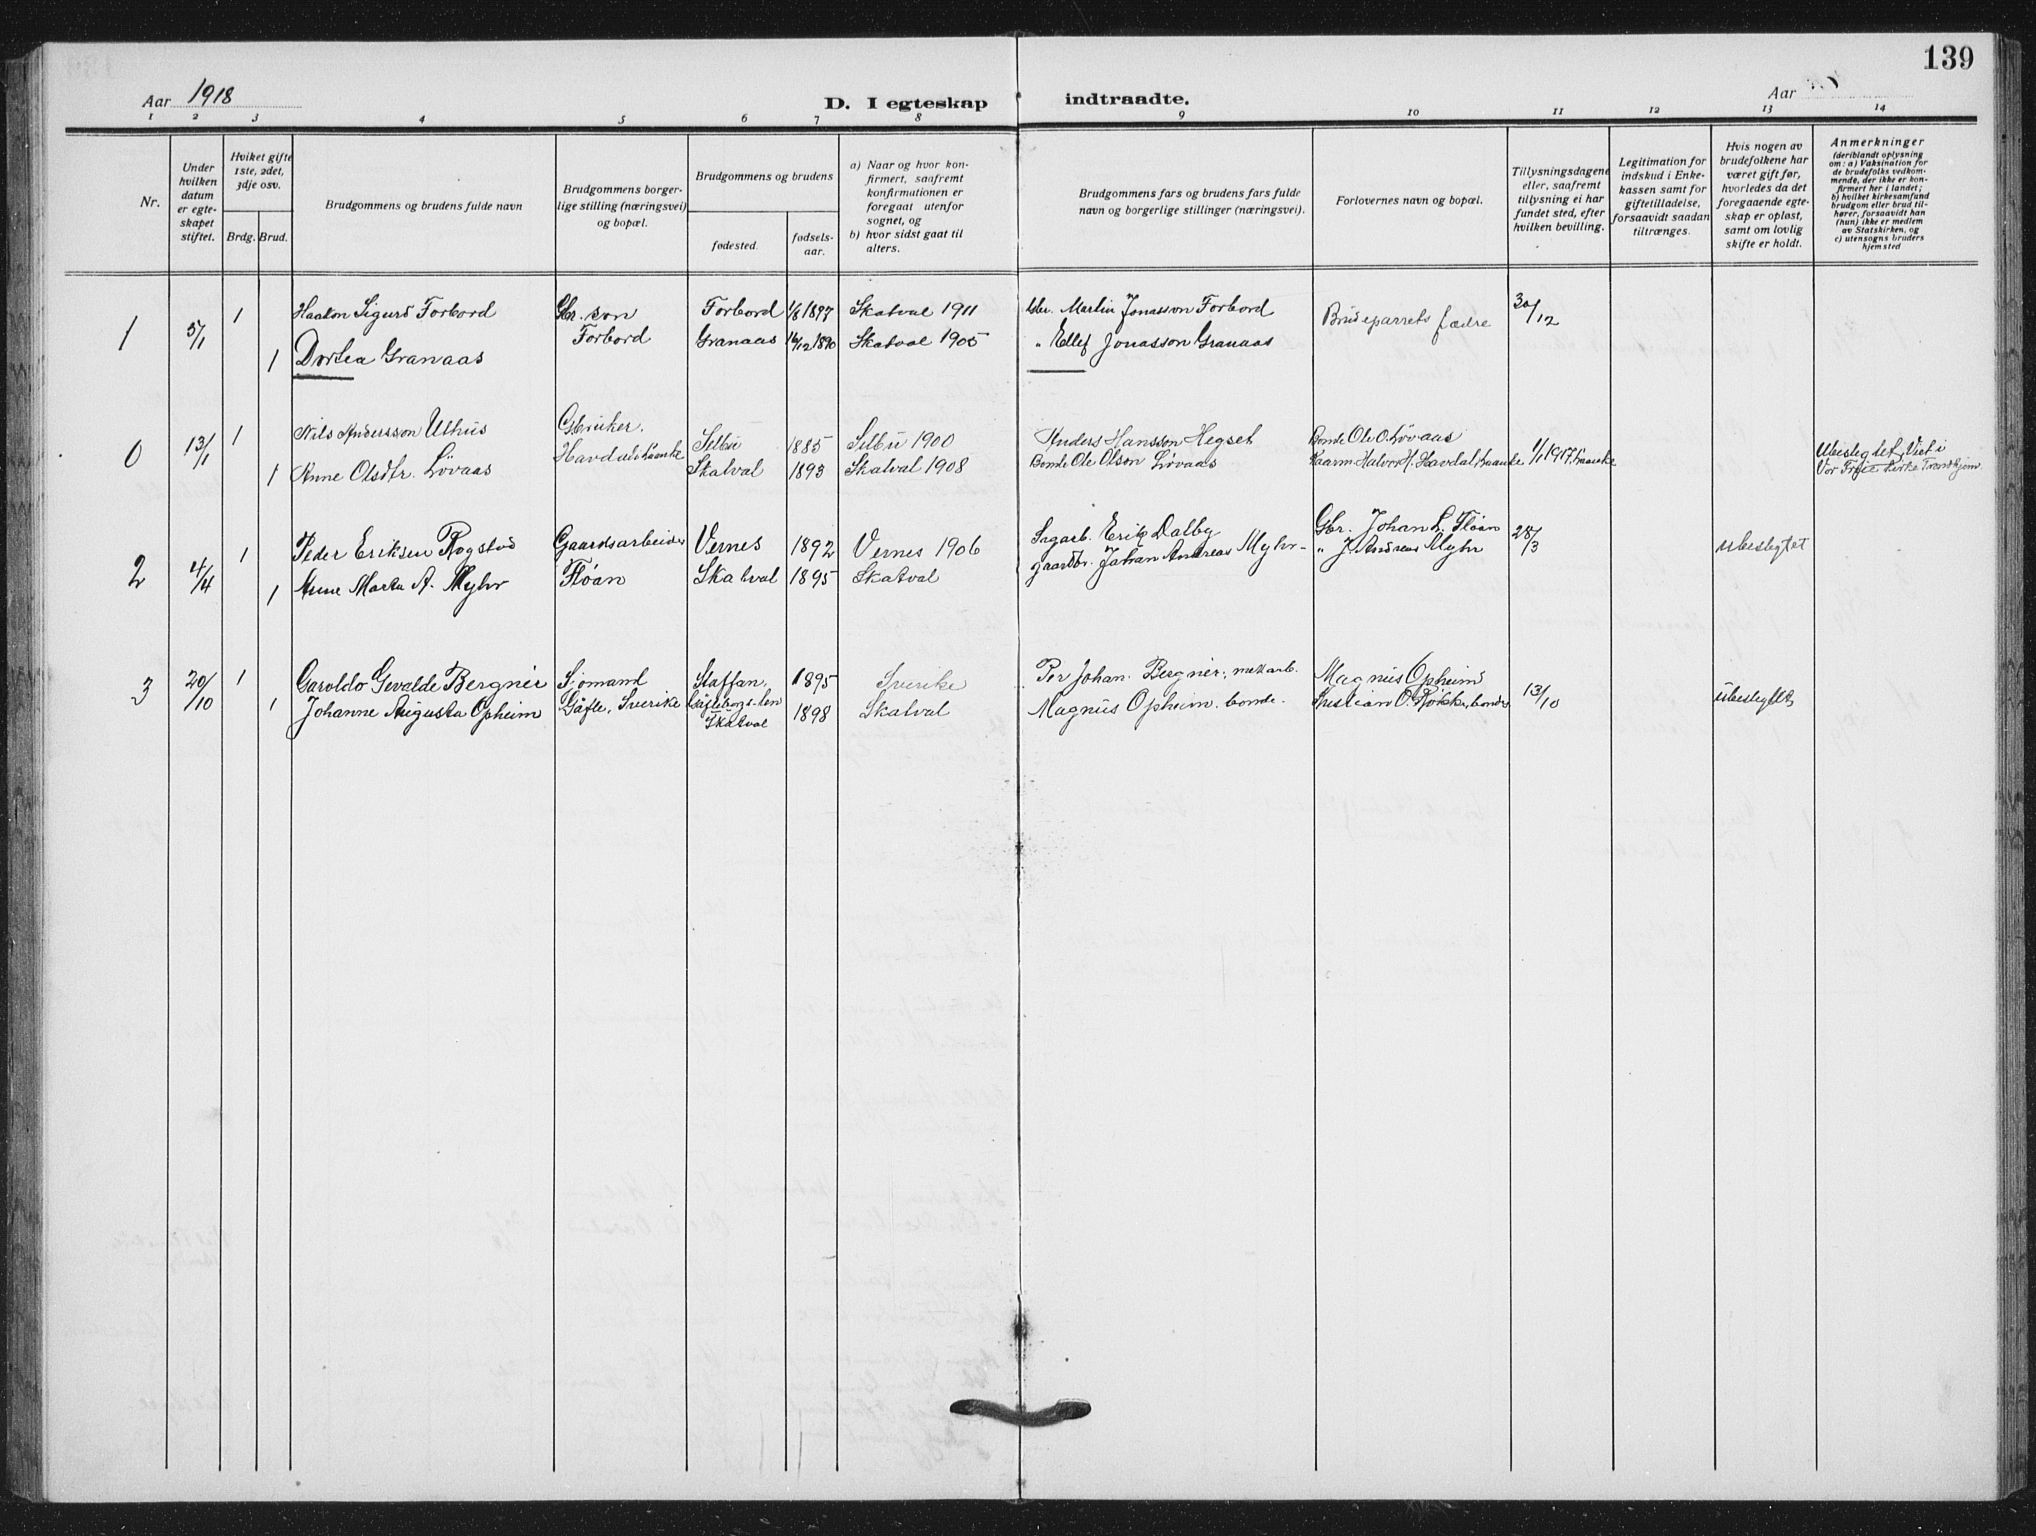 139
Aar 1918
D. I egteskap indtraadte.
Aar
1 2 3 4 5 6 7 8 9 10 11 12 13 14
Nr.
Under hvilken datum er egteskapet stiftet.
Hvilket gifte 1ste, 2det, 3dje osv.
Brdg. Brud.
Brudgommens og brudens fulde navn
Brudgommens borgerlige stilling (næringsvei) og bopæl.
Brudgommens og brudens
fødested. fødselsaar.
a) Naar og hvor konfirmert, saafremt konfirmationen er foregaat utenfor sognet, og
b) hvor sidst gaat til alters.
Brudgommens fars og brudens fars fulde navn og borgerlige stillinger (næringsvei).
Forlovernes navn og bopæl.
Tillysningsdagene eller, saafremt tillysning ei har fundet sted, efter hvilken bevilling.
Legitimation for indskud i Enkekassen samt for giftetilladelse, forsaavidt saadan tiltrænges.
Hvis nogen av brudefolkene har været gift før, hvorledes da det foregaaende egteskap er opløst, samt om lovlig skifte er holdt.
Anmerkninger
(deriblandt oplysning om: a) Vaksination for de brudefolks vedkommende, der ikke er konfirmert her i landet; b) hvilket kirkesamfund brudgom eller brud tilhører, forsaavidt han (hun) ikke er medlem av Statskirken, og c) utensogns bruders hjemsted
1 5/1 1 Haakon Sigurd Forbord Gbr. søn Forbord 1/8 1897 Skatval 1911 Gbr. Martin Jonasson Forbord Brudeparrets fædre 30/12
1 Dortea Granaas Forbord Granaas 16/12 1890 Skatval 1905 " Ellef Jonasson Granaas
0 13/1 1 Nils Andersson Uthus Gbruker. Selbu 1885 Selbu 1900 Anders Hansson Hegset Bonde Ole O. Løvaas
1 Anne Olsdtr. Løvaas Havdal Skatval 1893 Skatval 1908 Bonde Ole Olson Løvaas Halvor H. Havdal 1/1 1917 Ubeslegtet, Viet i Vor Frue kirke Trondhjem
2 4/4 1 Peder Eriksen Rogstad Gaardsarbeider Vernes 1892 Vernes 1906 Sagarb. Erik Dalby Gbr. Johan L. Fløan 28/3 ubeslegtet
1 Anne Marta A. Myhr Fløan Skatval 1895 Skatval gaardbr. Johan Andreas Myhr " J. Andreas Myhr
3 20/10 1 Garoldo Gevalde Bergner Sjømand Staffan, 1895 Sverike Per Johan Bergner, Magnus Opheim
1 Johanne Augusta Opheim Gäfle, Sverike Gäfleborgs län Skatval 1898 Skatval Magnus Opheim. bonde. Kristian O. Røkke, bonde 13/10 ubeslegtet